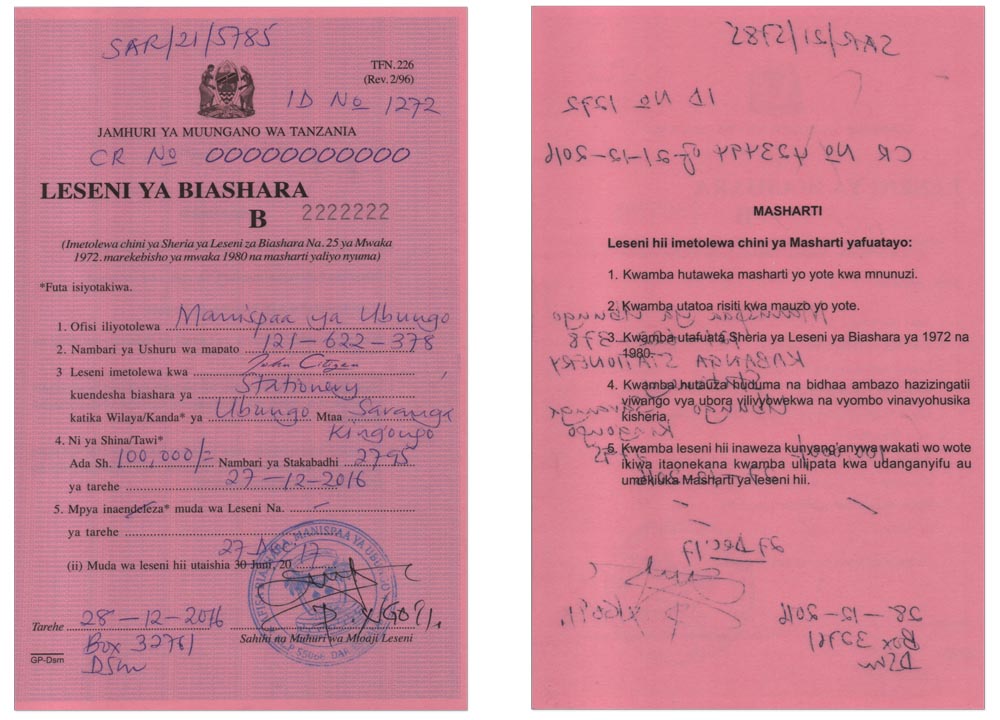 SAR/21/5785
TFN. 226
(Rev. 2/96)
ID No 1272
JAMHURI YA MUUNGANO WA TANZANIA
CR No 00000000000
LESENI YA BIASHARA
B 2222222
(Imetolewa chini ya Sheria ya Leseni za Biashara Na. 25 ya Mwaka
1972. marekebisho ya mwaka 1980 na masharti yaliyo nyuma)
*Futa isiyotakiwa.
1. Ofisi iliyotolewa Manispaa ya Ubungo
2. Nambari ya Ushuru wa mapato 121-622-378
3 Leseni imetolewa kwa John Citizen
kuendesha biashara ya Stationery
katika Wilaya/Kanda* ya Ubungo Mtaa Saranga
Kingongo
4. Ni ya Shina/Tawi*
Ada Sh. 100,000/= Nambari ya Stakabadhi 2795
ya tarehe 27-12-2016
5. Mpya inaendeleza* muda wa Leseni Na. -
ya tarehe -
27 Dec. 17
(ii) Muda wa leseni hii utaishia 30 Juni, 20
Tarehe 28-12-2016
Sahihi na Muhuri wa Mtoaji Leseni
Box 32761
DSM
GP-Dsm
SAR/21/5785
ID No 1272
CR No 423494 of 21-12-2016
MASHARTI
Leseni hii imetolewa chini ya Masharti yafuatayo:
1. Kwamba hutaweka masharti yo yote kwa mnunuzi.
2. Kwamba utatoa risiti kwa mauzo yo yote.
Manispaa ya Ubungo
3. Kwamba utafuata Sheria ya Leseni ya Biashara ya 1972 na
1980.
KABANGA STATIONERY
4. Kwamba hutauza huduma na bidhaa ambazo hazizingatii
viwango vya ubora vilivyowekwa na vyombo vinavyohusika
kisheria.
Ubungo Saranga
Kingongo
5. Kwamba leseni hii inaweza kunyang'anywa wakati wo wote
ikiwa itaonekana kwamba ulipata kwa udanganyifu au
umekiuka Masharti ya leseni hii.
27 Dec. 17
28-12-2016
Box 32761
DSM